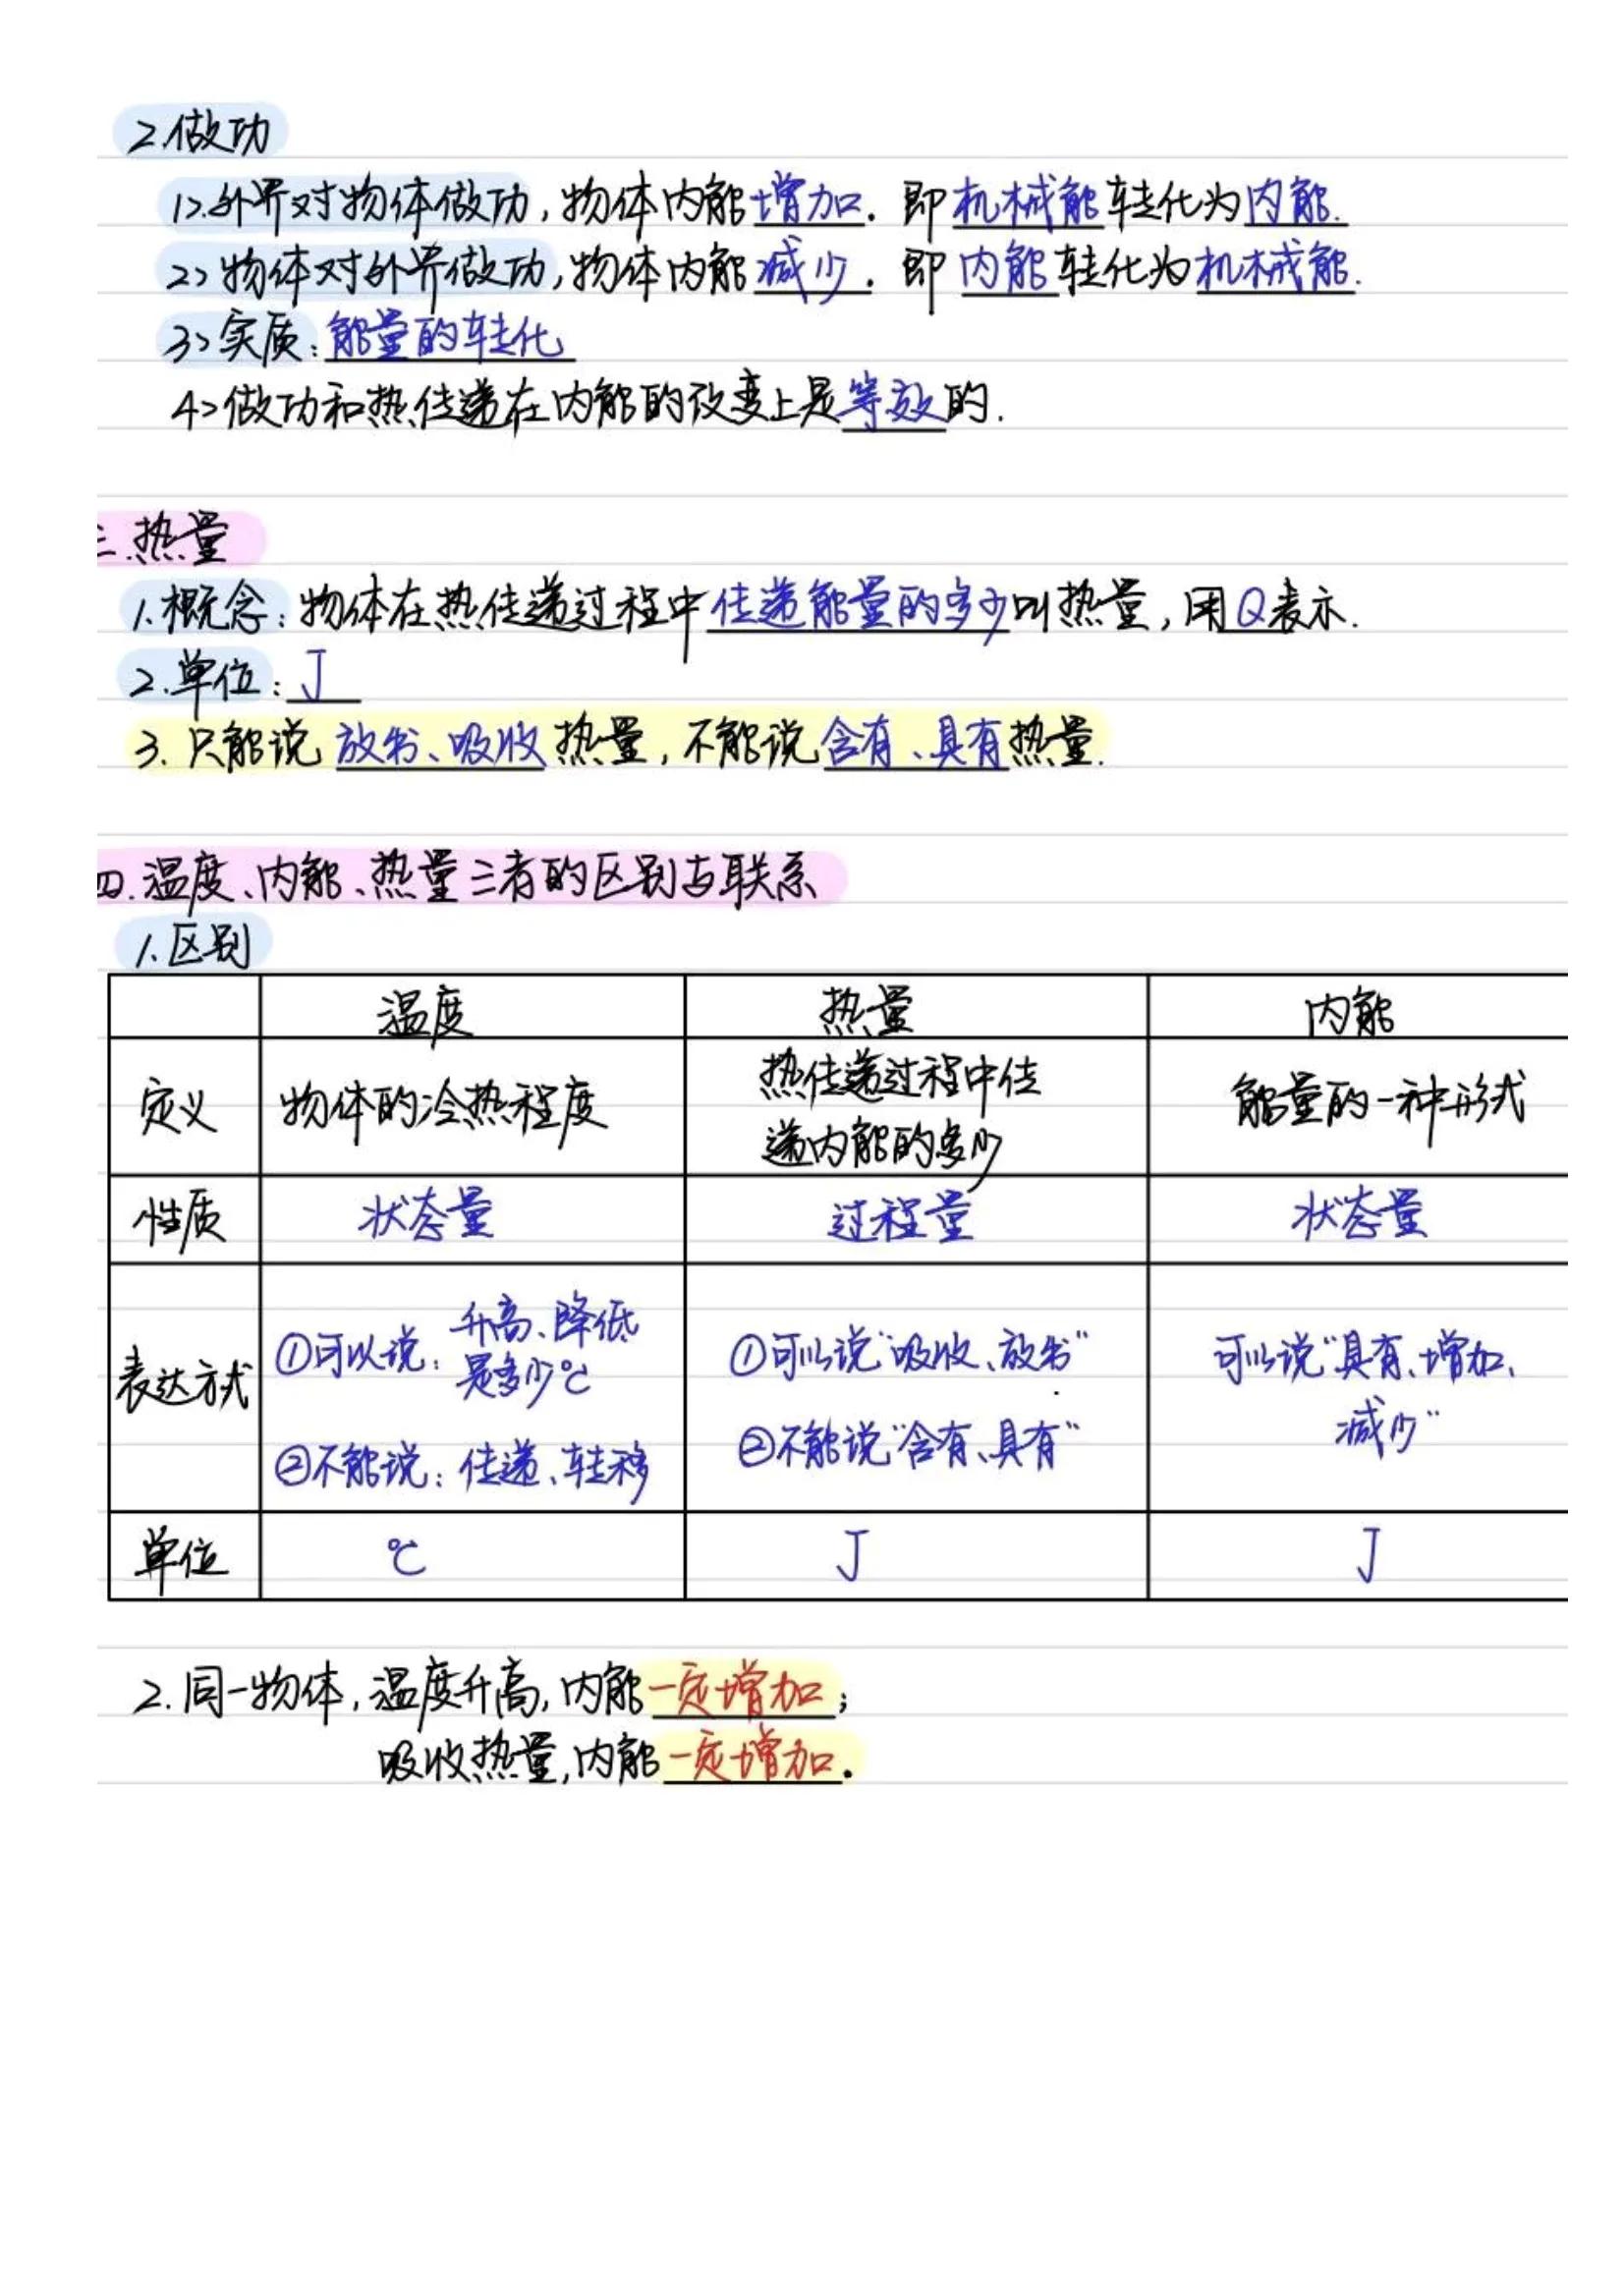 2.做功
1>.外界对物体做功,物体内能增加. 即机械能转化为内能.
2>物体对外界做功,物体内能减少. 即内能转化为机械能.
3>实质:能量的转化
4>做功和热传递在内能的改变上是等效的.
三.热量
1.概念:物体在热传递过程中传递能量的多少叫热量,用Q表示.
2.单位:J
3.只能说放出、吸收热量,不能说含有、具有热量.
四.温度、内能、热量三者的区别与联系
1.区别
温度 热量 内能
定义 物体的冷热程度 热传递过程中传递内能的多少 能量的一种形式
性质 状态量 过程量 状态量
表达方式 ①可以说:升高、降低 是多少℃ ①可以说"吸收、放出" 可以说"具有、增加、减少"
②不能说:传递、转移 ②不能说"含有、具有"
单位 ℃ J J
2.同一物体,温度升高,内能一定增加;
吸收热量,内能一定增加.